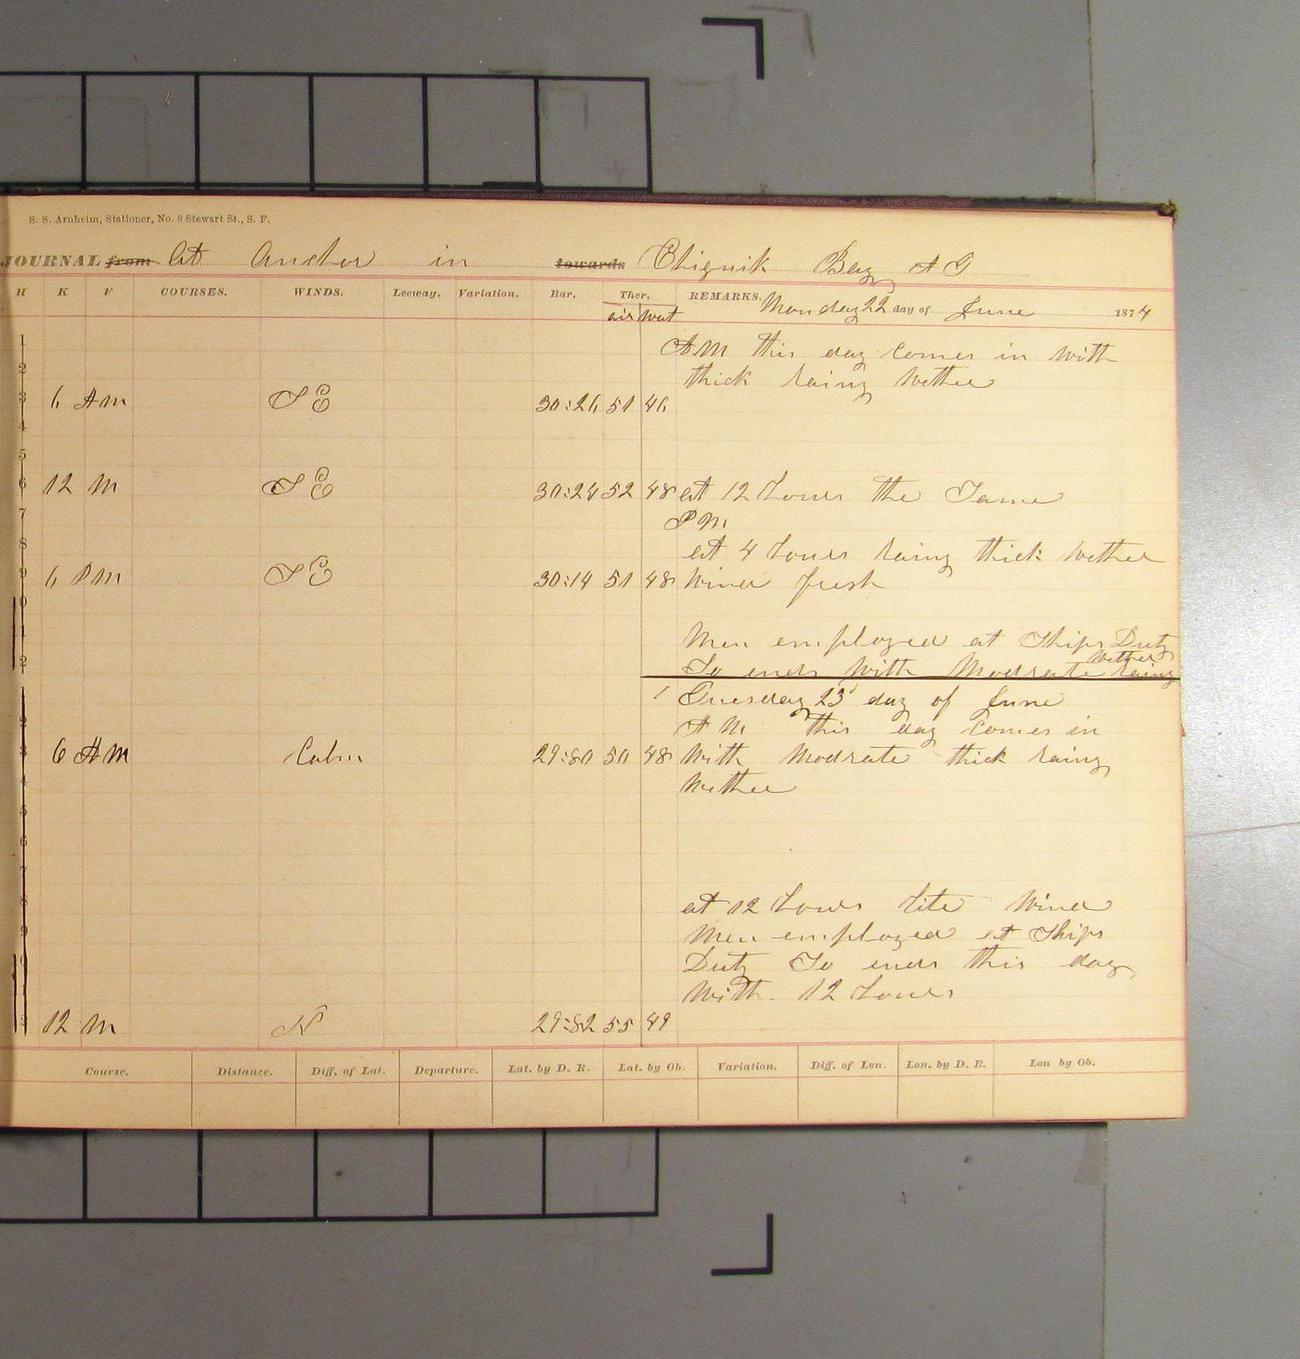 S. S. Arnheim, Stationer, No. 8 Stewart St., S. F.
JOURNAL from At Anchor in towards Chignik Bay
H K F COURSES. WINDS. Leeway. Variation. Bar. Ther. REMARKS. Monday 22 day of June 1874
air Wat
1 AM this day comes in With
2 thick raing Wether
3 6 AM S E 30:26 51 46
4
5
6 12 M S E 30:24 52 48 at 12 houers the Same
7 PM
8 at 4 houers raing thick Wether
9 6 PM S E 30:14 51 48 Wind fresh
0
1 Men employed at Ships Duty
2 So ends With Modrate raing Wether
1 Tuesday 23 day of June
2 AM this day comes in
3 6 AM Calm 29:80 50 48 With Modrate thick raing
4 Wether
5
6
7
8 at 12 houers lite Wind
9 Men employed at Ships
0 Duty So ends this day
With 12 houers
2 12 M N 29:82 55 49
Course. Distance. Diff. of Lat. Departure. Lat. by D. R. Lat. by Ob. Variation. Diff. of Lon. Lon. by D. R. Lon by Ob.